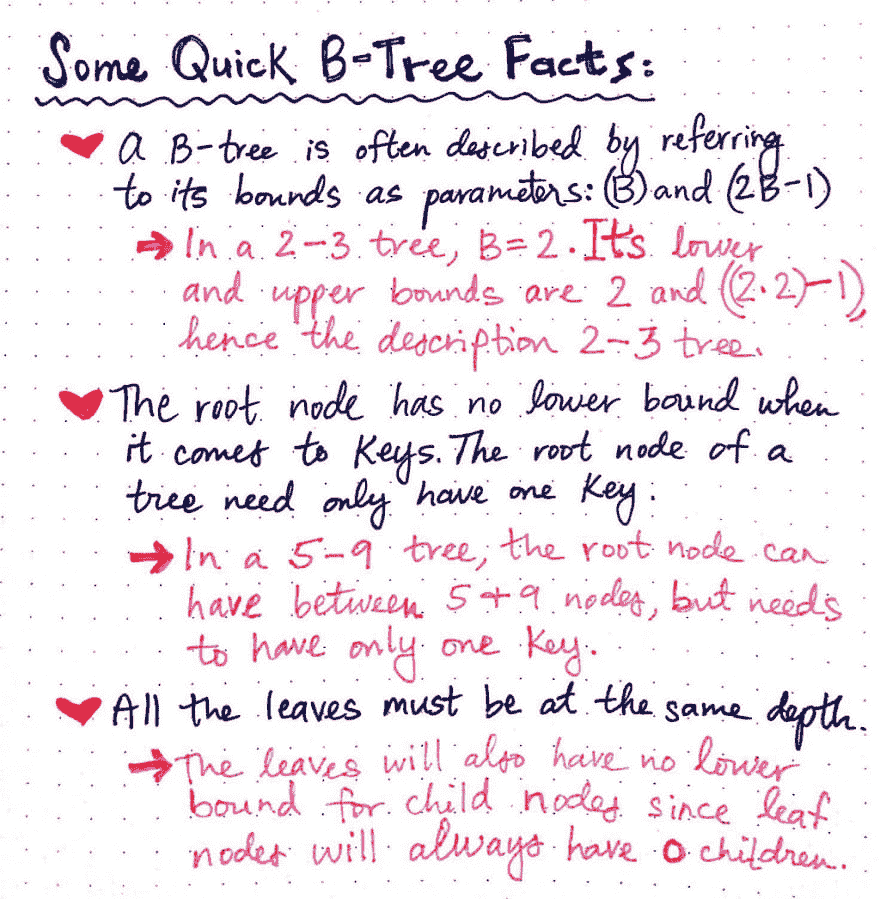 Some Quick B-Tree Facts:
a B-tree is often described by referring
to its bounds as parameters: (B) and (2B-1)
→ In a 2-3 tree, B=2. It's lower
and upper bounds are 2 and ((2·2)-1),
hence the description 2-3 tree.
The root node has no lower bound when
it comes to keys. The root node of a
tree need only have one key.
→ In a 5-9 tree, the root node can
have between 5+9 nodes, but needs
to have only one key.
All the leaves must be at the same depth.
→ The leaves will also have no lower
bound for child nodes since leaf
nodes will always have 0 children.